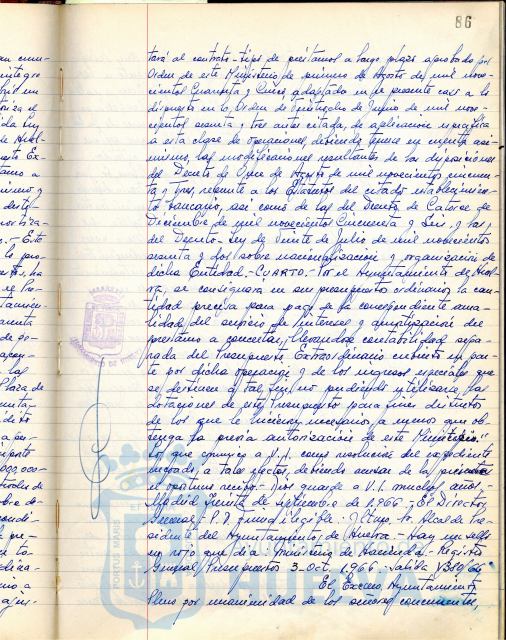 86
tará al contrato-tipo de préstamos a largo plazo aprobado por
Orden de este Ministerio de primero de Agosto de mil nove-
cientos Cuarenta y Cinco, adaptado en el presente caso a lo
dispuesto en la Orden de Veintiocho de Junio de mil nove-
cientos sesenta y tres antes citada, de aplicación específica
a esta clase de operaciones, debiendo tenerse en cuenta asi-
mismo, las modificaciones resultantes de las disposiciones
del Decreto de Once de Agosto de mil novecientos cincuen-
ta y tres, referente a los Estatutos del citado establecimien-
to bancario, así como de las del Decreto de Catorce de
Diciembre de mil novecientos Cincuenta y Seis, y las
del Decreto-Ley de Veinte de Julio de mil novecientos
sesenta y dos sobre nacionalización y organización de
dicha Entidad.- CUARTO.- Por el Ayuntamiento de Huel-
va, se consignará en su presupuesto ordinario la can-
tidad precisa para pago de la correspondiente anua-
lidad del servicio de intereses y amortización del
préstamo a concertar, llevándose contabilidad sepa-
rada del Presupuesto Extraordinario cubierto en par-
te por dicha operación y de los ingresos especiales que
se destinen a tal fin, no pudiendo utilizarse las
dotaciones de este Presupuesto para fines distintos
de los que le hicieron necesario, a menos que ob-
tenga la previa autorización de este Ministerio."
Lo que comunico a V.I. como resolución del expediente
incoado, a tales efectos, debiendo acusar de la presente
el oportuno recibo.- Dios guarde a V.I. muchos años.-
Madid Treinta de septiembre de 1.966 - El Director
General - P.D. firma ilegible. Iltmo. Sr. Alcalde Pre-
sidente del Ayuntamiento de Huelva.- Hay un sello
en rojo que dice: Ministerio de Hacienda.- Registro
General, Presupuestos 3-Oct. 1.966 - Salida
El Excmo. Ayuntamiento
Pleno por unanimidad de los señores concurrentes,
PORTUS MARIS
HUELVA